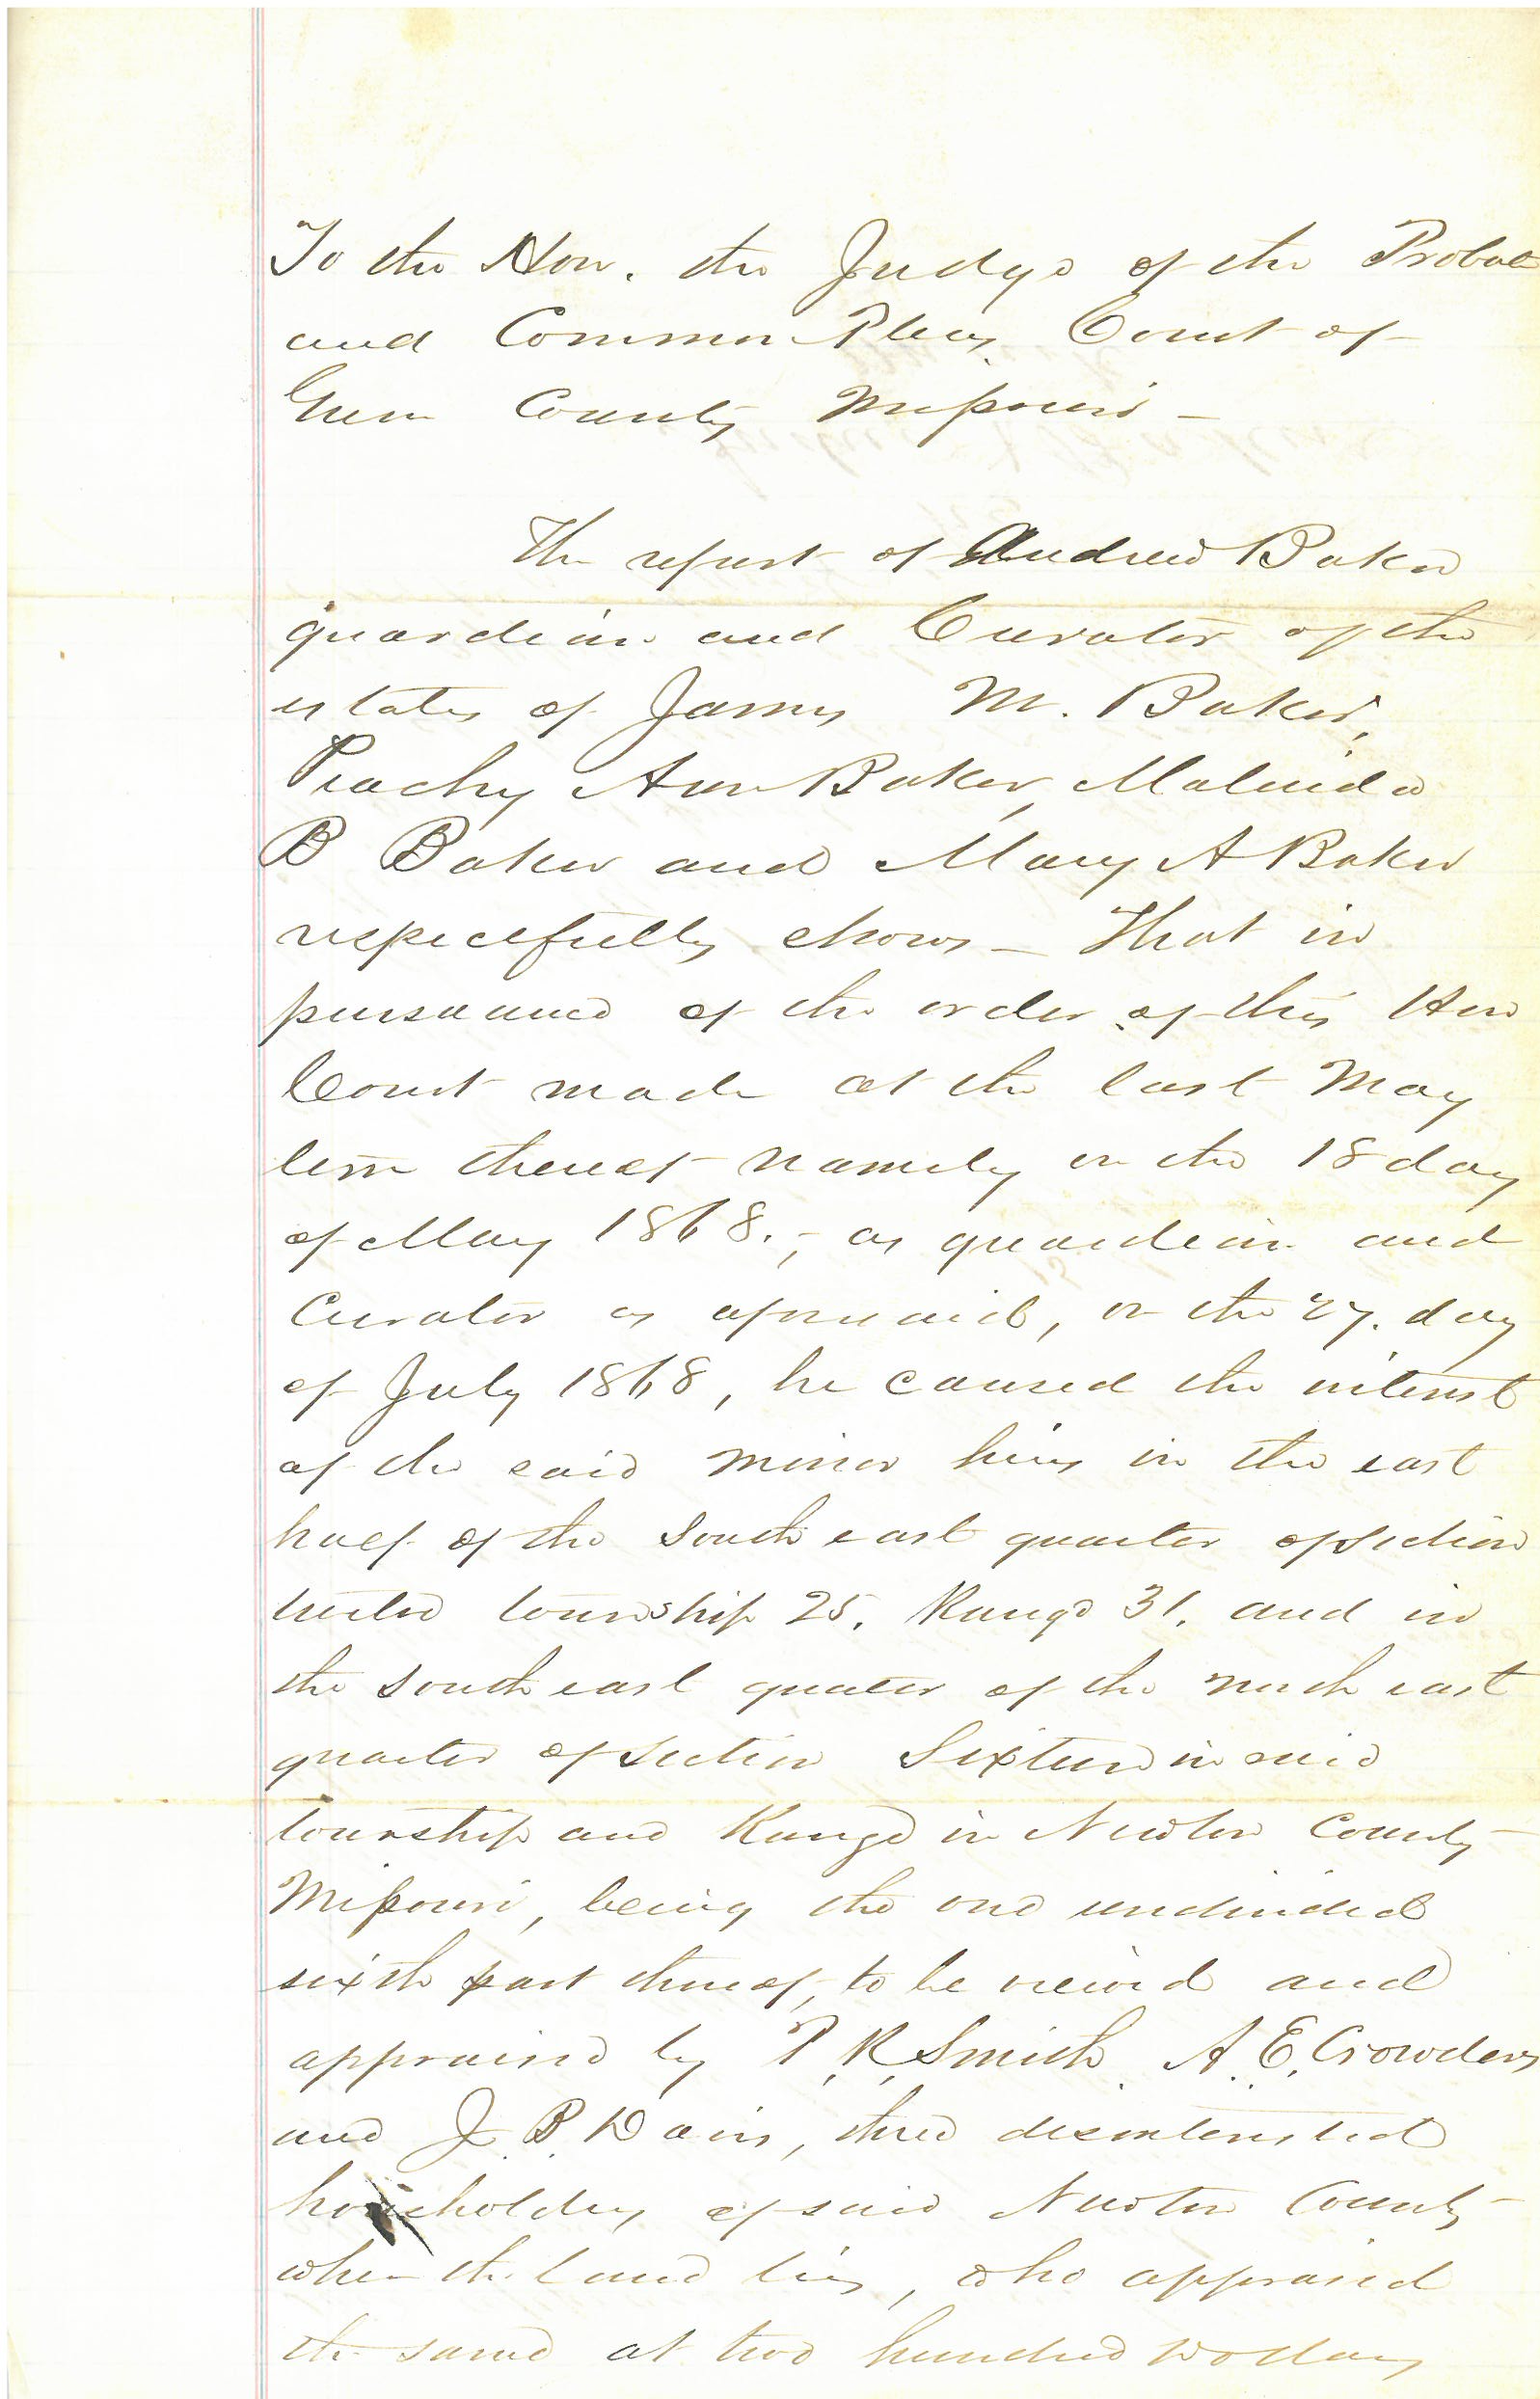 To the Hon. the Judge of the Probate
and Common Pleas Court of
Green County Missouri –
The report of Andrew Baker
guardian and Curator of the
estates of James M. Baker,
Peachy Ann Baker, Malinda
B Baker and Mary A Baker
respectfully shows – That in
pursuance of the order of this Hon
Court made at the last May
term thereof namely on the 18 day
of May 1868., – as guardian and
Curator as aforesaid, on the 27. day
of July 1868, he caused the interest
of the said minor heirs in the east
half of the South east quarter of Section
township 25. Range 31. and in
the South east quarter of the north east
quarter of Section Sixteen in said
township and Range in Newton County
Missouri, being the one undivided
sixth part thereof, to be viewed and
appraised by P. R. Smith, A. E. Crowders
and J. B. Davis, three disinterested
householders of said Newton County
where the land lies, who appraised
the same at two hundred Dollars